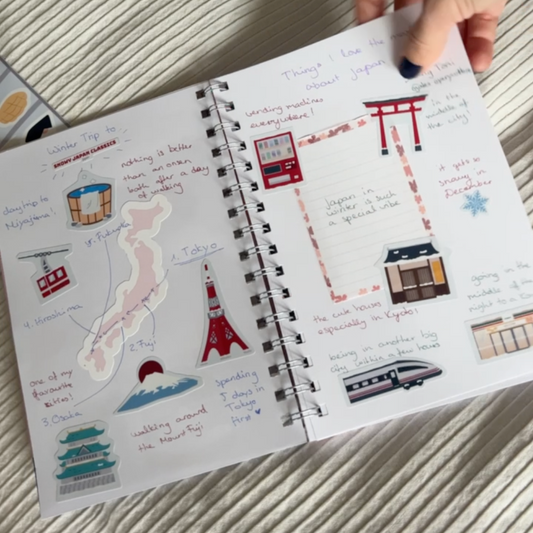 Winter Trip to
SNOWY JAPAN CLASSICS
nothing is better
than an onsen
bath after a day
of walking
day trip to
Miyajima!
5. Fukuoka
1. Tokyo
4. Hiroshima
2. Fuji
one of my
favourite
3. Osaka
spending
5 days in
Tokyo
first
walking around
the Mount Fuji
Things I love the
about Japan
vending machines
everywhere!
in the
middle of
the city!
it gets so
snowy in
December
Japan in
winter is such
a special vibe
the cute houses
especially in Kyoto!
going in the
middle of the
night to a
being in another big
city within a few hours